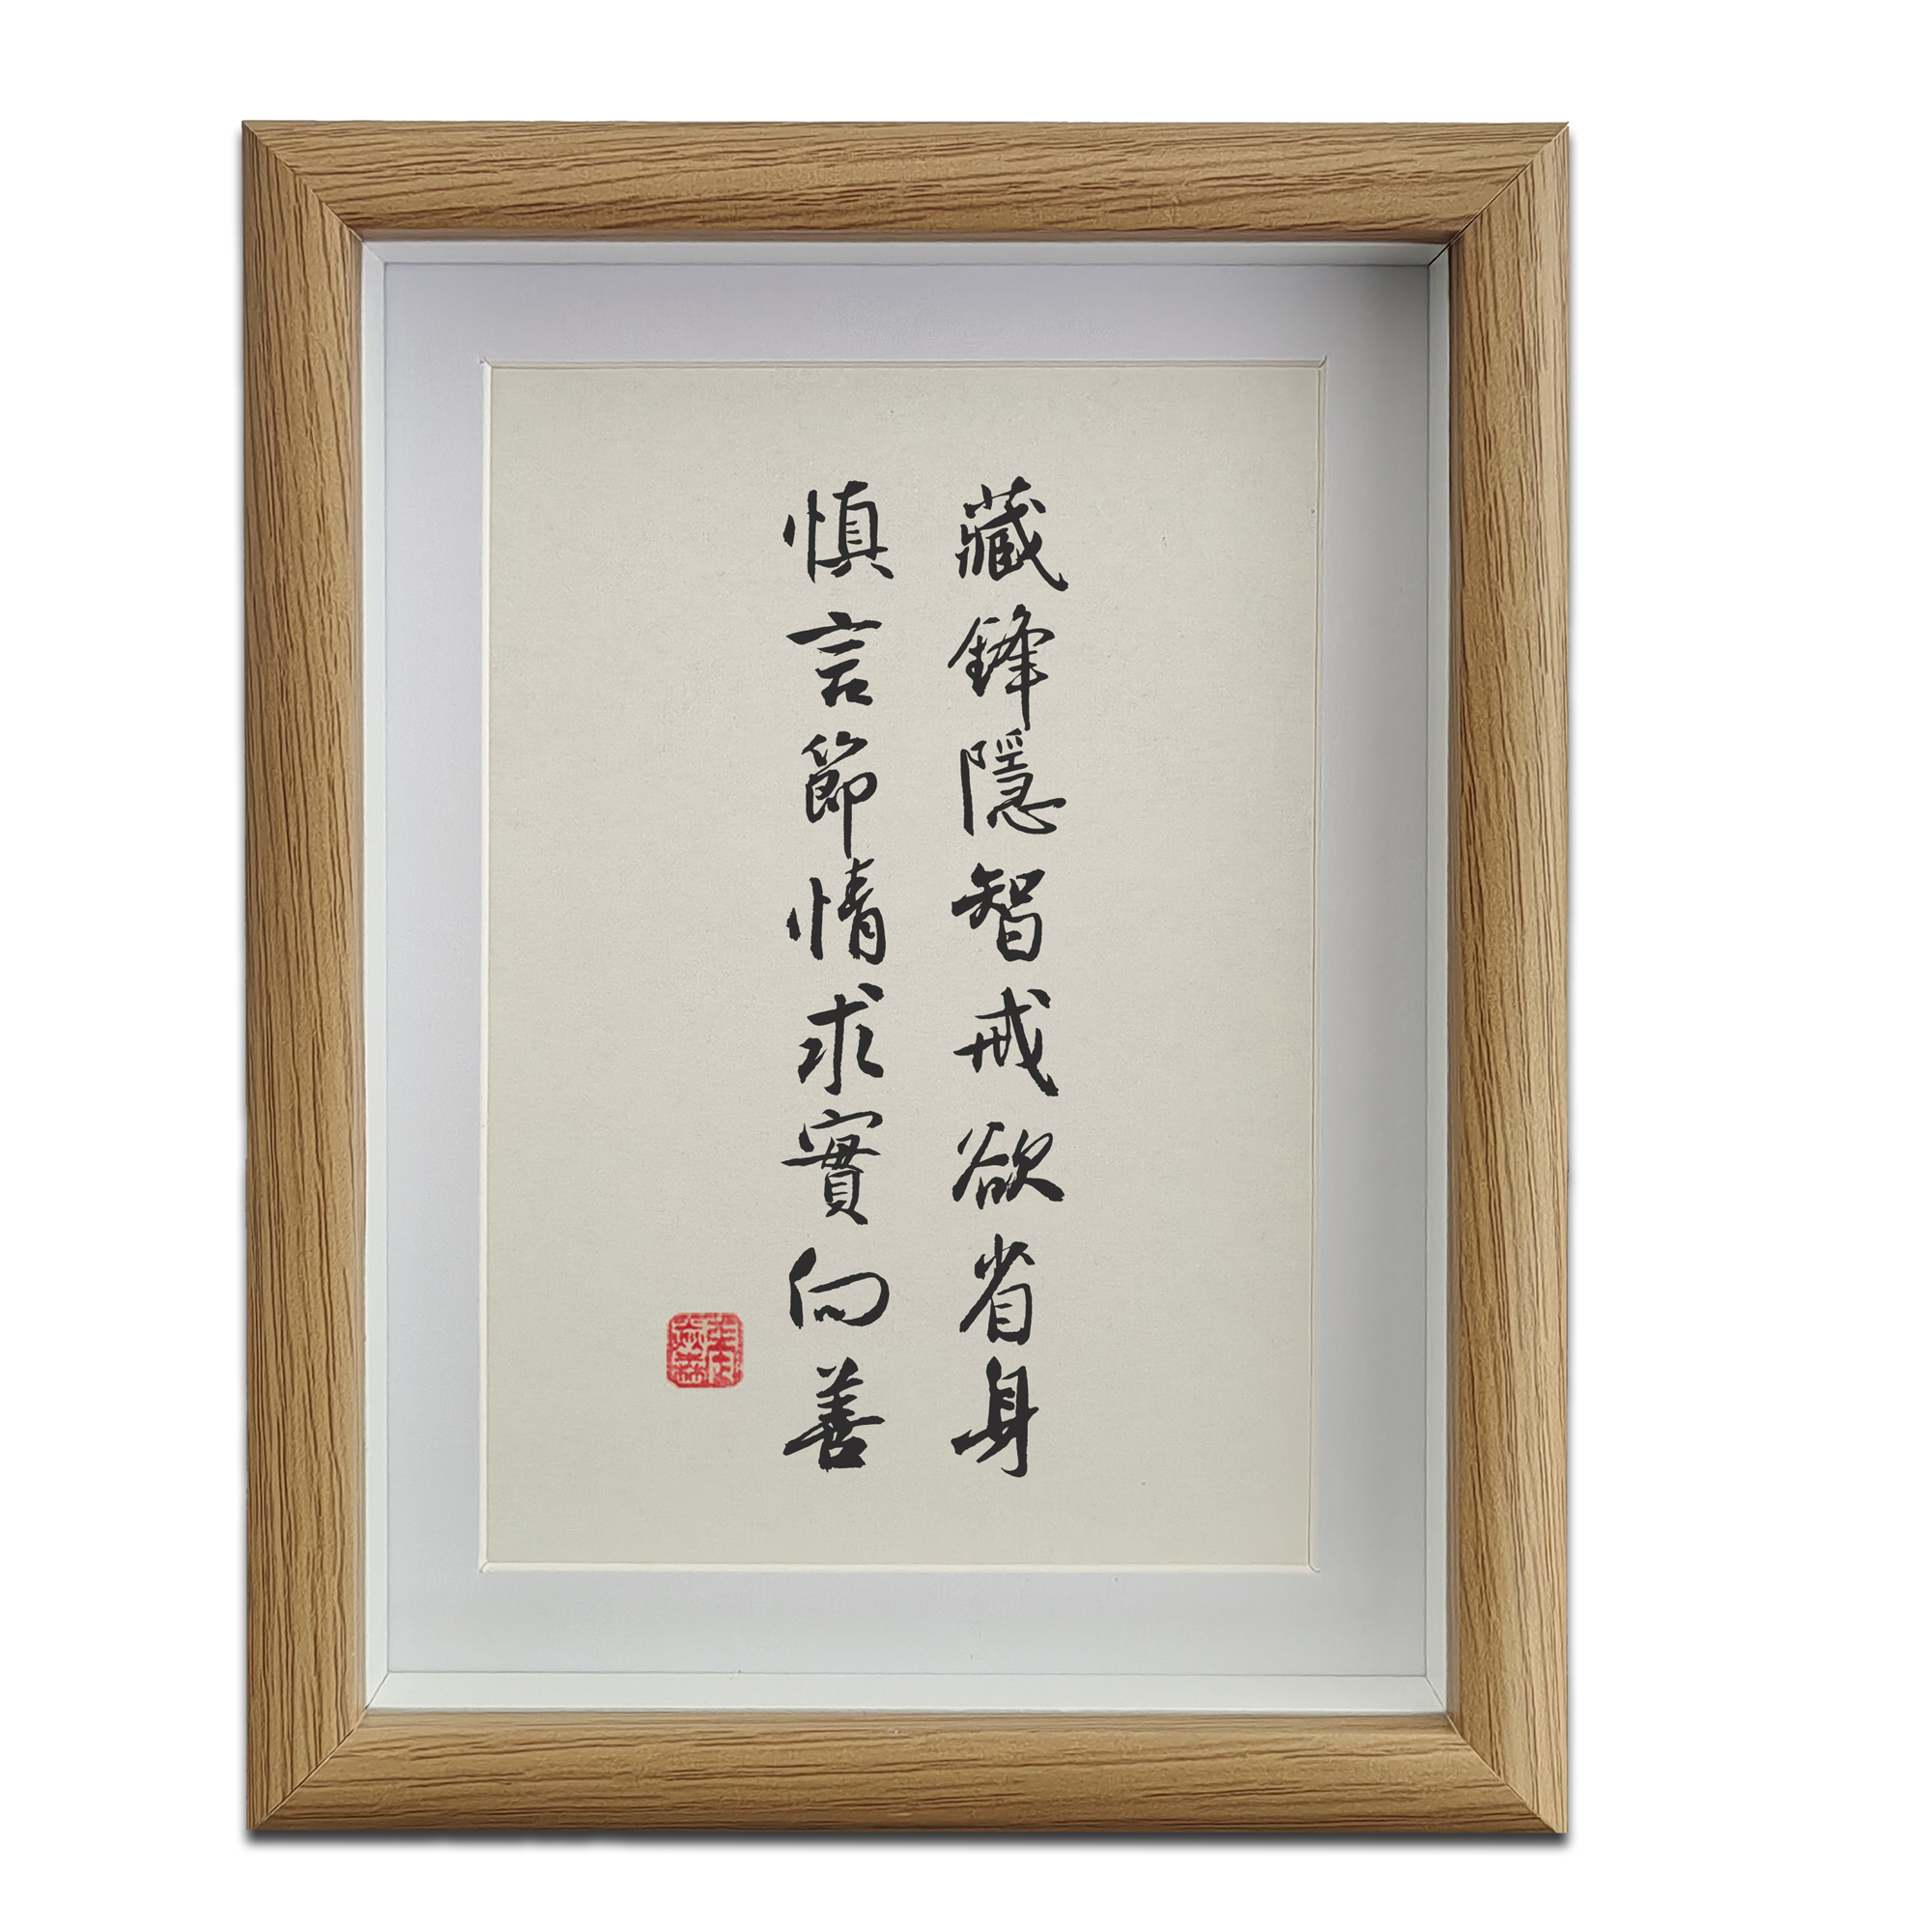 藏鋒隱智戒欲省身
慎言節情求實向善